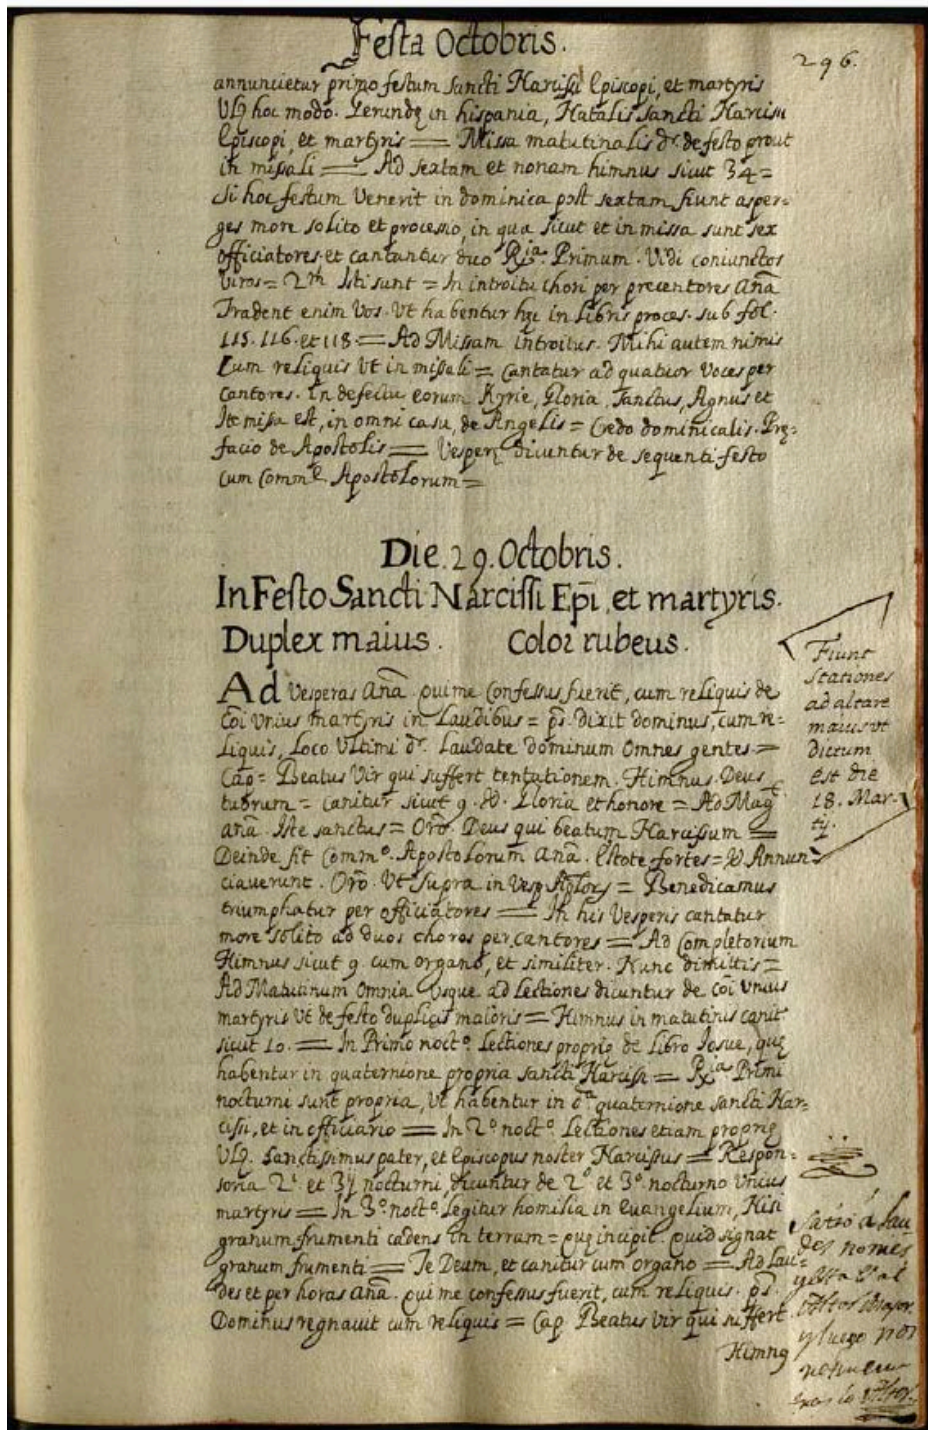 Festa Octobris.
296.
annuncietur primo festum sancti Narcissi Episcopi, et martyris
hoc modo. Gerundę in hispania, Natalis sancti Narcissi
Episcopi, et martyris = Missa matutinalis dr. de festo prout
in missali = Ad sextam et nonam himnus sicut 34 =
Si hoc festum Venerit in dominica post sextam fiunt asper=
ges more solito et processio, in qua sicut et in missa sunt sex
officiatores et cantantur duo Ria. Primum. Vidi coniunctos
Viros = 2m Isti sunt = In introitu chori per precentores Anã
Tradent enim Vos. Vt habentur hęc in Libris proces. sub fol.
115. 116. et 118. = Ad Missam introitus. Mihi autem nimis
Cum reliquis Vt in missali = Cantatur ad quatuor Voces per
Cantores. In defectu eorum Kyrie, Gloria, Sanctus, Agnus et
Ite missa est, in omni casu, de Angelis = Credo dominicalis. Prę=
facio de Apostolis = Vesperę dicuntur de sequenti festo
cum Comme. Apostolorum =
Die. 29. Octobris.
In Festo Sancti Narcissi Epĩ, et martyris.
Duplex maius. Color rubeus.
Ad Vesperas Anã. qui me Confessus fuerit, cum reliquis de
Cõi Vnius martyris in Laudibus = ps. dixit dominus, cum re=
liquis, Loco Vltimi dr. Laudate dominum Omnes gentes =
Cap = Beatus Vir qui suffert tentationem. Himnus. Deus
tuorum = canitur sicut 9. V. Gloria et honore = Ad Magt
anã. Iste sanctus = Orõ. Deus qui beatum Narcissum =
Deinde fit Commo. Apostolorum Anã. Estote fortes = V. Annun=
ciaverunt. Orõ. Vt supra in Vesp = Benedicamus
triumphatur per officiatores = In his Vesperis cantatur
more solito ad duos choros per cantores = Ad Completorium
Himnus sicut 9. cum organo, et similiter. Nunc dimittis =
Ad Matutinum Omnia Vsque ad Lectiones dicuntur de Cõi Vnius
martyris Vt de festo duplicis maioris = Himnus in matutinis canit
sicut 10. = In Primo nocto. Lectiones proprię de Libro Iosue, quę
habentur in quaternione propria sancti Narcissi = Ria Primi
nocturni sunt propria, Vt habentur in quaternione sancti Nar=
cissi, et in officiario = In 2o. nocto. Lectiones etiam proprię
Sanctissimus pater, et Episcopus noster Narcissus = Respon=
soria 2i. et 3ij nocturni, dicuntur de 2o. et 3o. nocturno Vnius
martyris = In 3o. nocto. Legitur homilia in Euangelium, Nisi
granum frumenti cadens in terram = quę incipit. quid signat
granum frumenti = Te Deum, et canitur cum organo = Ad Lau=
des et per horas Anã. qui me confessus fuerit, cum reliquis. ps.
Dominus regnauit cum reliquis = Cap Beatus Vir qui suffert
Himnq
Fiunt
stationes
ad altare
maius vt
dictum
est die
18. Mar=
tij.
á Lau
des
y luego por